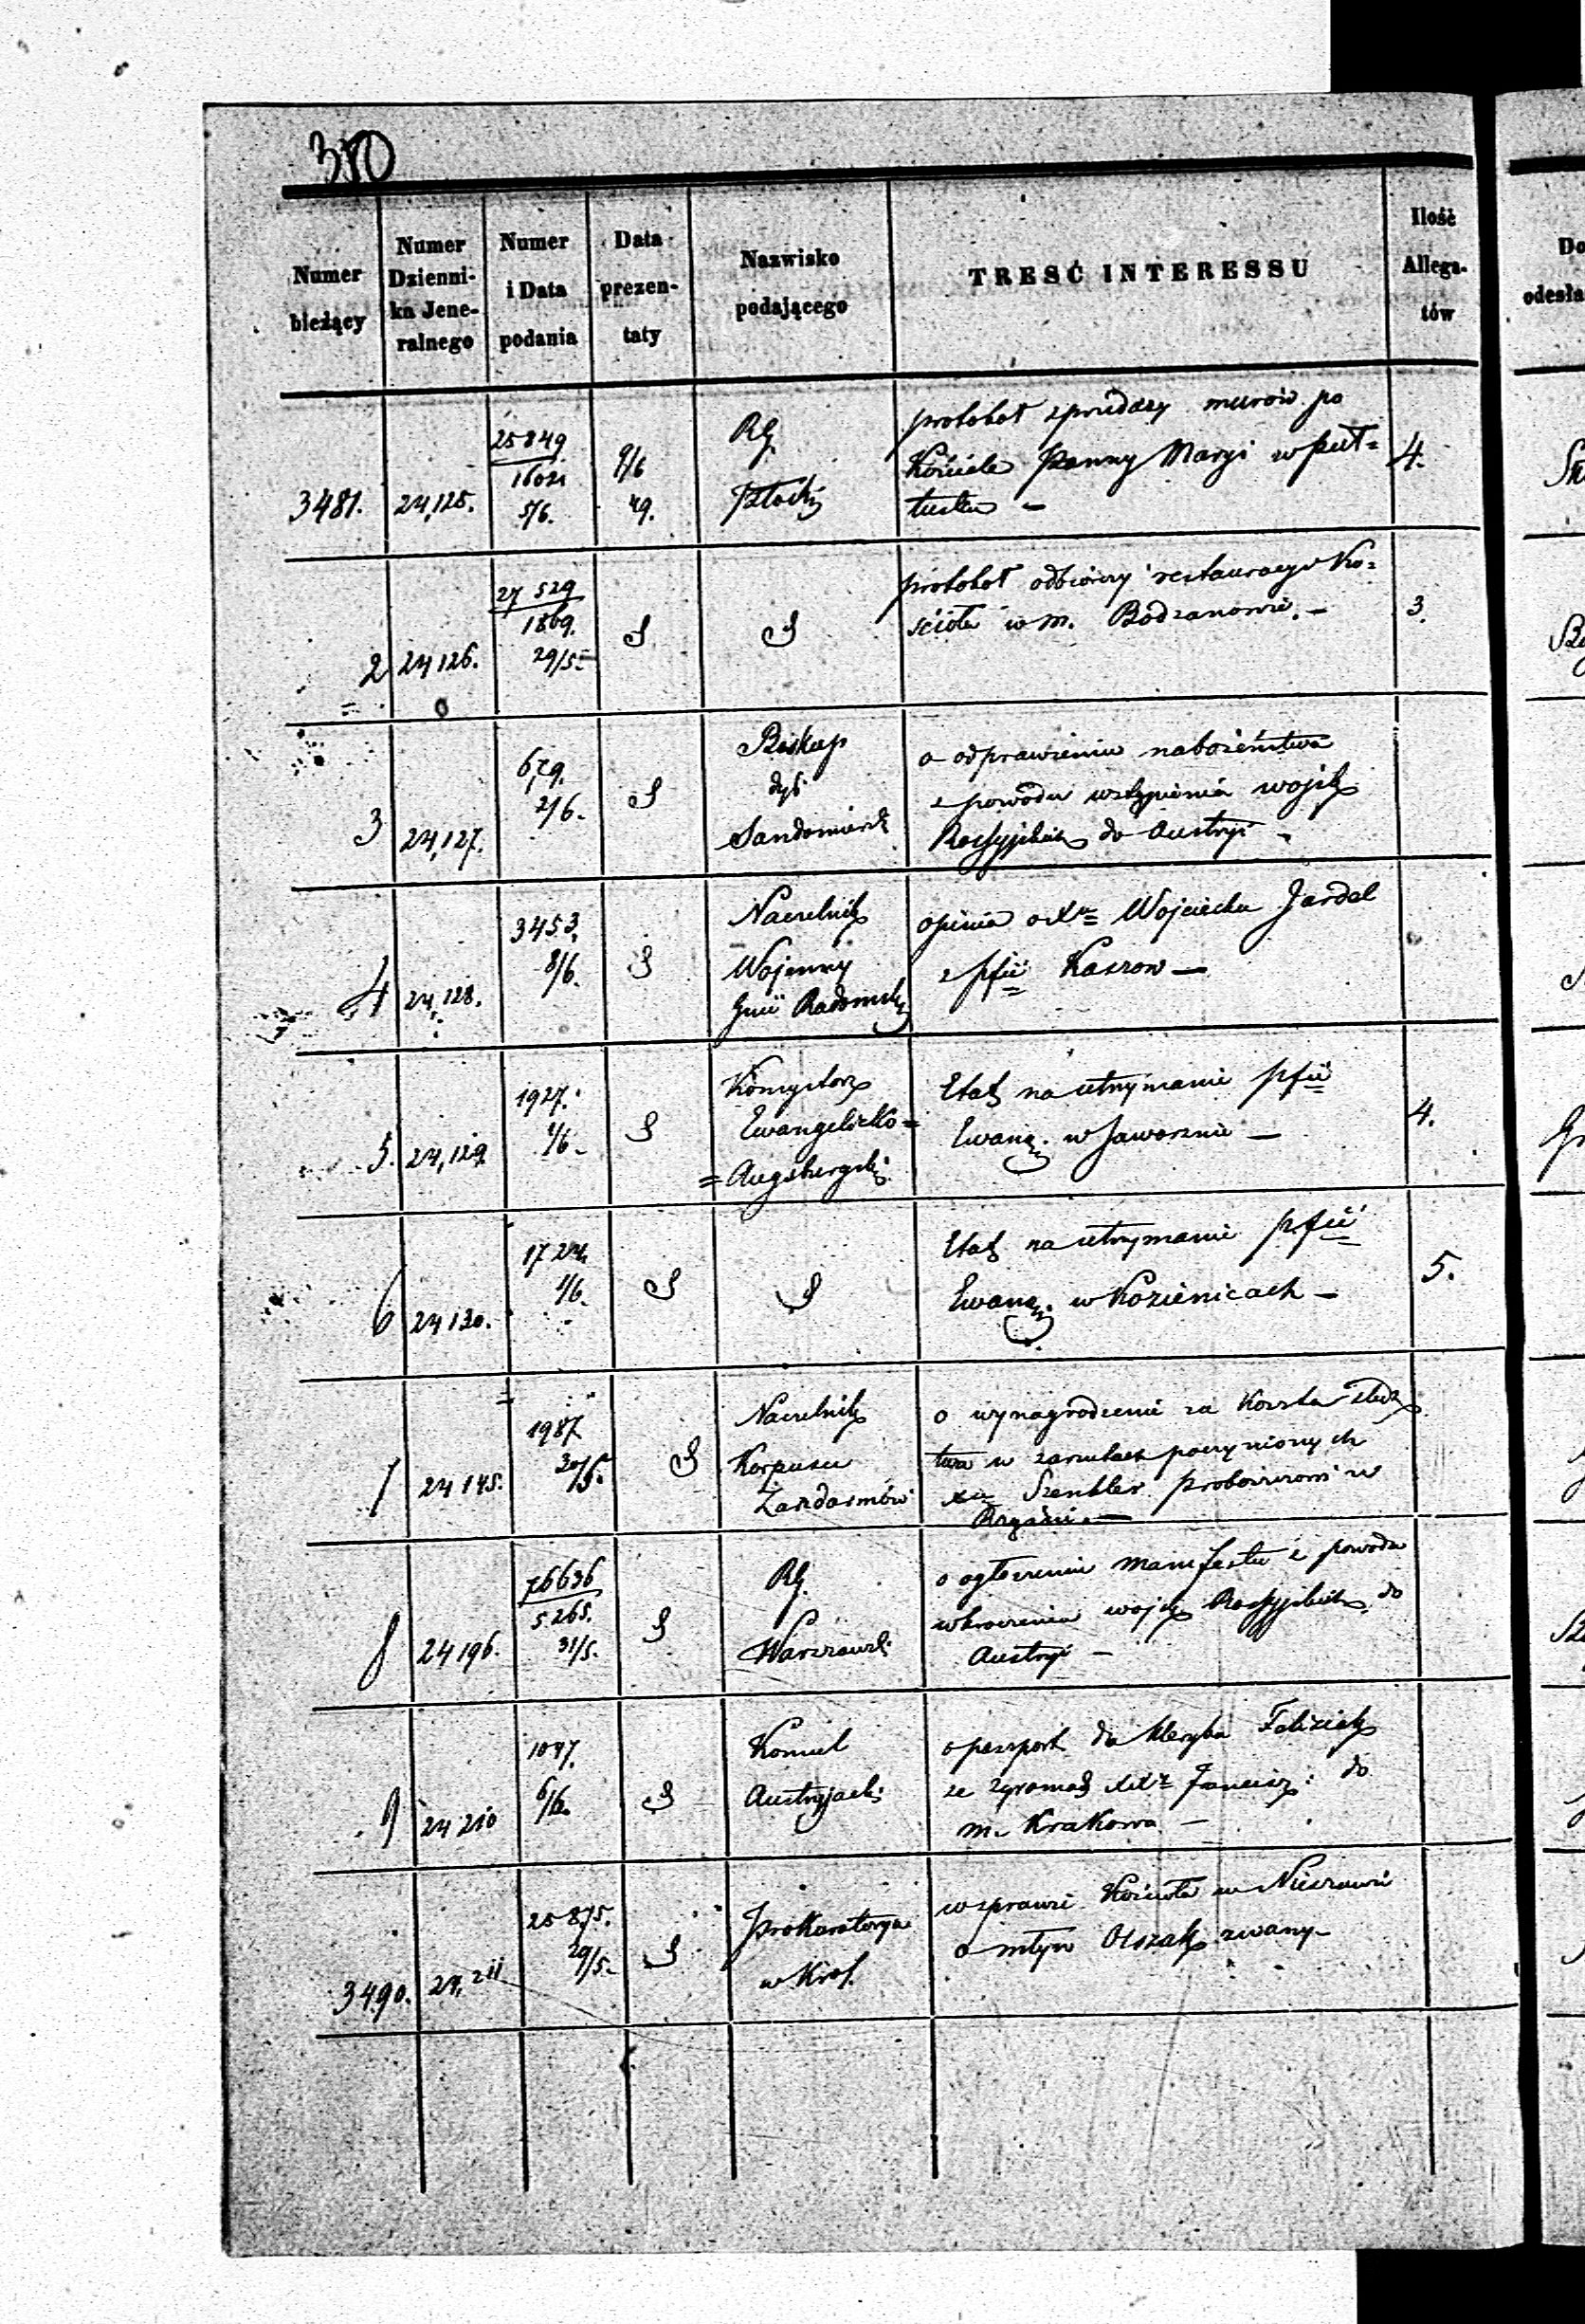 350
Numer bieżący
Numer Dzienni-ka Jene-ralnego
Numer i Data podania
Data prezen-taty
Nazwisko podającego
TRESĆ INTERESSU
Ilość Allega-tów
Do
odesła
3481. 24,125. 25849 5/6. 9/6 49. RG. Płocki
protokół sprzedaży murów po
Kościele Panny Maryi w Puł=
tusku – 4.
2 24126. 27 529 1869. 29/5 S S
protokół odbiorczy restauracyi Ko=
ścioła w m. Bodzanowie. – 3.
3 24,127. 679. 2/6. S Biskup
dyf.
Sandomiersk
o odprawieniu nabożeństwa
z powodu wstąpienia wojsk
Rossyjskich do Austryi –
4 24,128. 3453. 8/6. S Naczelnik
Wojenny
Gnii Radomsk
opinia o Xu Wojciechu Jardel
z pfii Kaszow –
5. 24,129. 1927. 1/6. S Konsystorz
Ewangelicko=
=Augsburgski
Etat na utrzymanie pfii
Ewang. w Jaworznie – 4.
6 24130. 1724. 1/6. S S
Etat na utrzymanie pfii
Ewang. w Kozienicach – 5.
7 24145. 1987 30/5. S Naczelnik
Korpusu
Żandarmów
o wynagrodzenie za Koszta śledz
twa w zarzutach poczynionych
Xu Szenkler proboszczowi w
8 24196. 76636 5265. 31/5. S RG.
Warszawski
o ogłoszeniu manifestu z powodu
wkroczenia wojsk Rossyjskich do
Austryi –
9 24210 1047. 6/6. S Konsul
Austryjacki
o paszport dla kleryka
ze zgromad XX Francisz: do
m. Krakowa –
3490. 24,211 25875. 29/5. S Prokuratorya
w Król.
w sprawie Kościoła w Nieszawie
o młyn Olszak zwany –